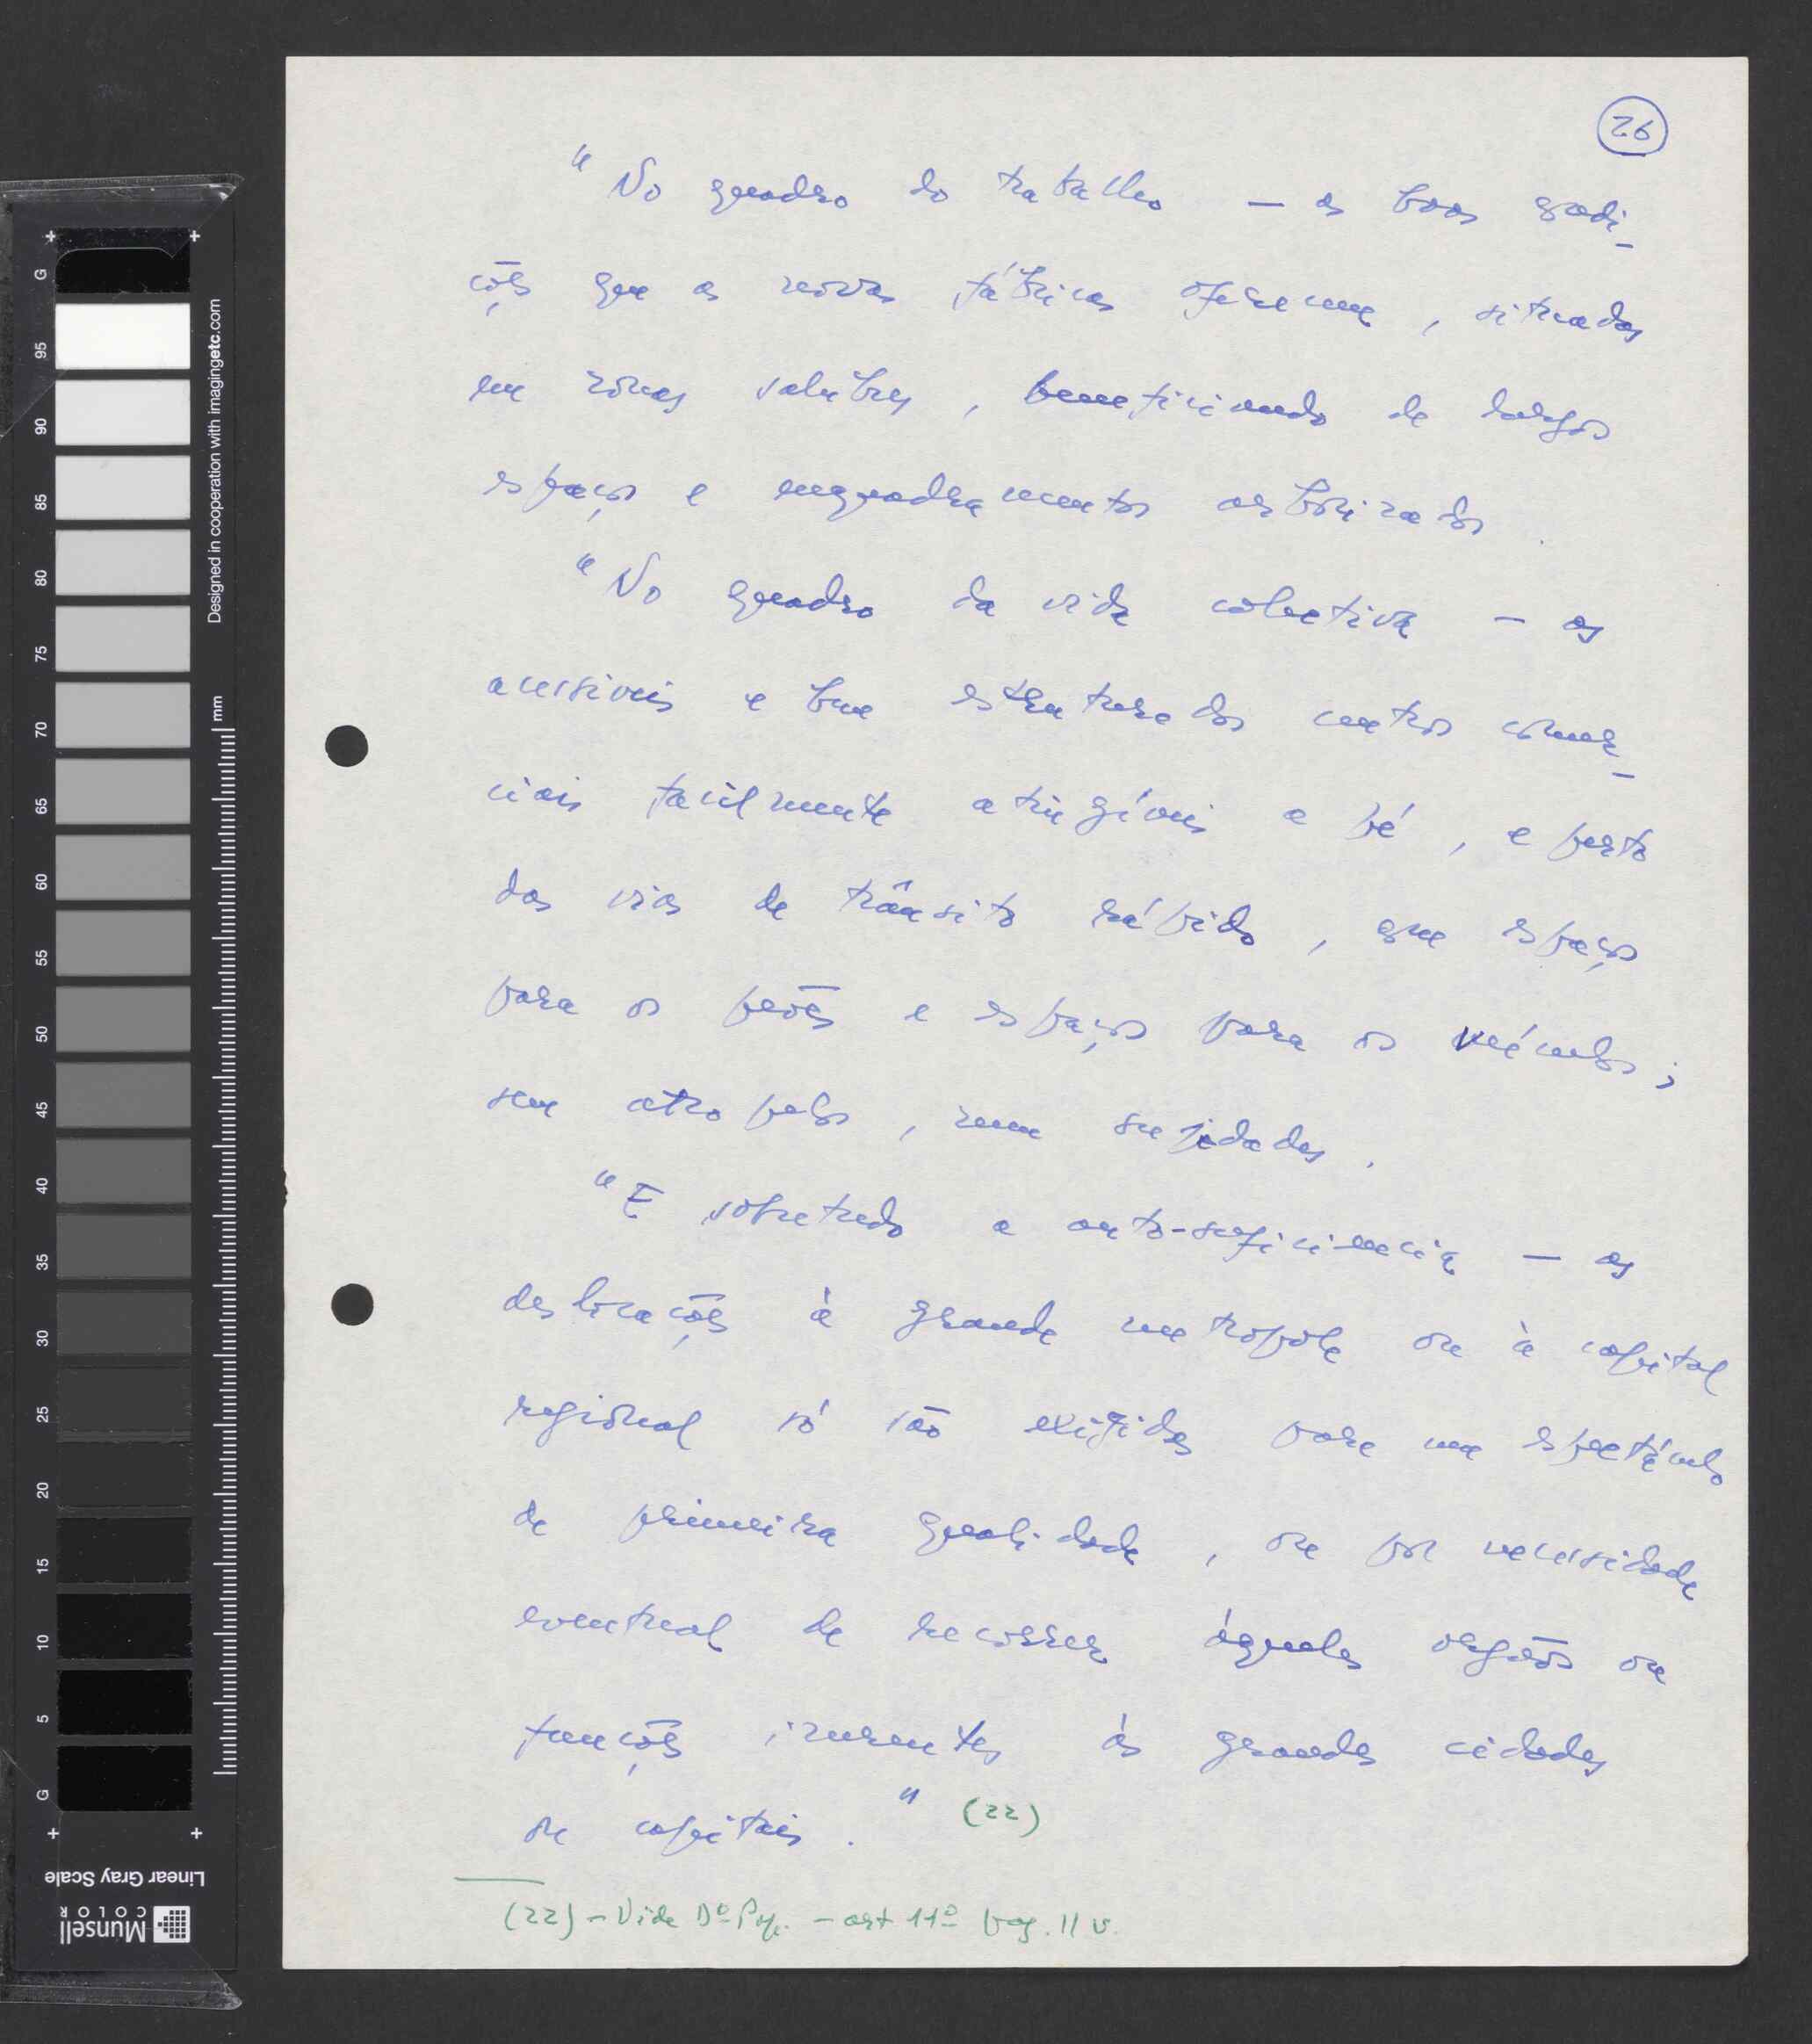 26
" No quadro do trabalho — as boas condi-
ções que as novas fábricas oferecem , situadas
em zonas salubres , beneficiando de largos
espaços e enquadramentos arborizados .
" No quadro da vida colectiva — os
acessiveis e bem estruturados centros comer-
ciais facilmente atingíveis a pé , e perto
das vias de trânsito rápido , com espaços
para os peões e espaços para os veículos ;
sem atropelos , sem sujidades .
" E sobretudo a auto-suficiencia — as
deslocações à grande metropole ou à capital
regional só são exigidas para um espectáculo
de primeira qualidade , ou por necessidade
eventual de recorrer áqueles orgãos ou
funções inerentes ás grandes cidades
ou capitais . " (22)
(22) – Vide Dº – art 11º pag. 11 v.
G 95 90 85 80 75 70 65 60 55 50 45 40 35 30 25 20 15 10 5 G
mm
Designed in cooperation with imagingetc.com
Linear Gray Scale
Munsell
COLOR